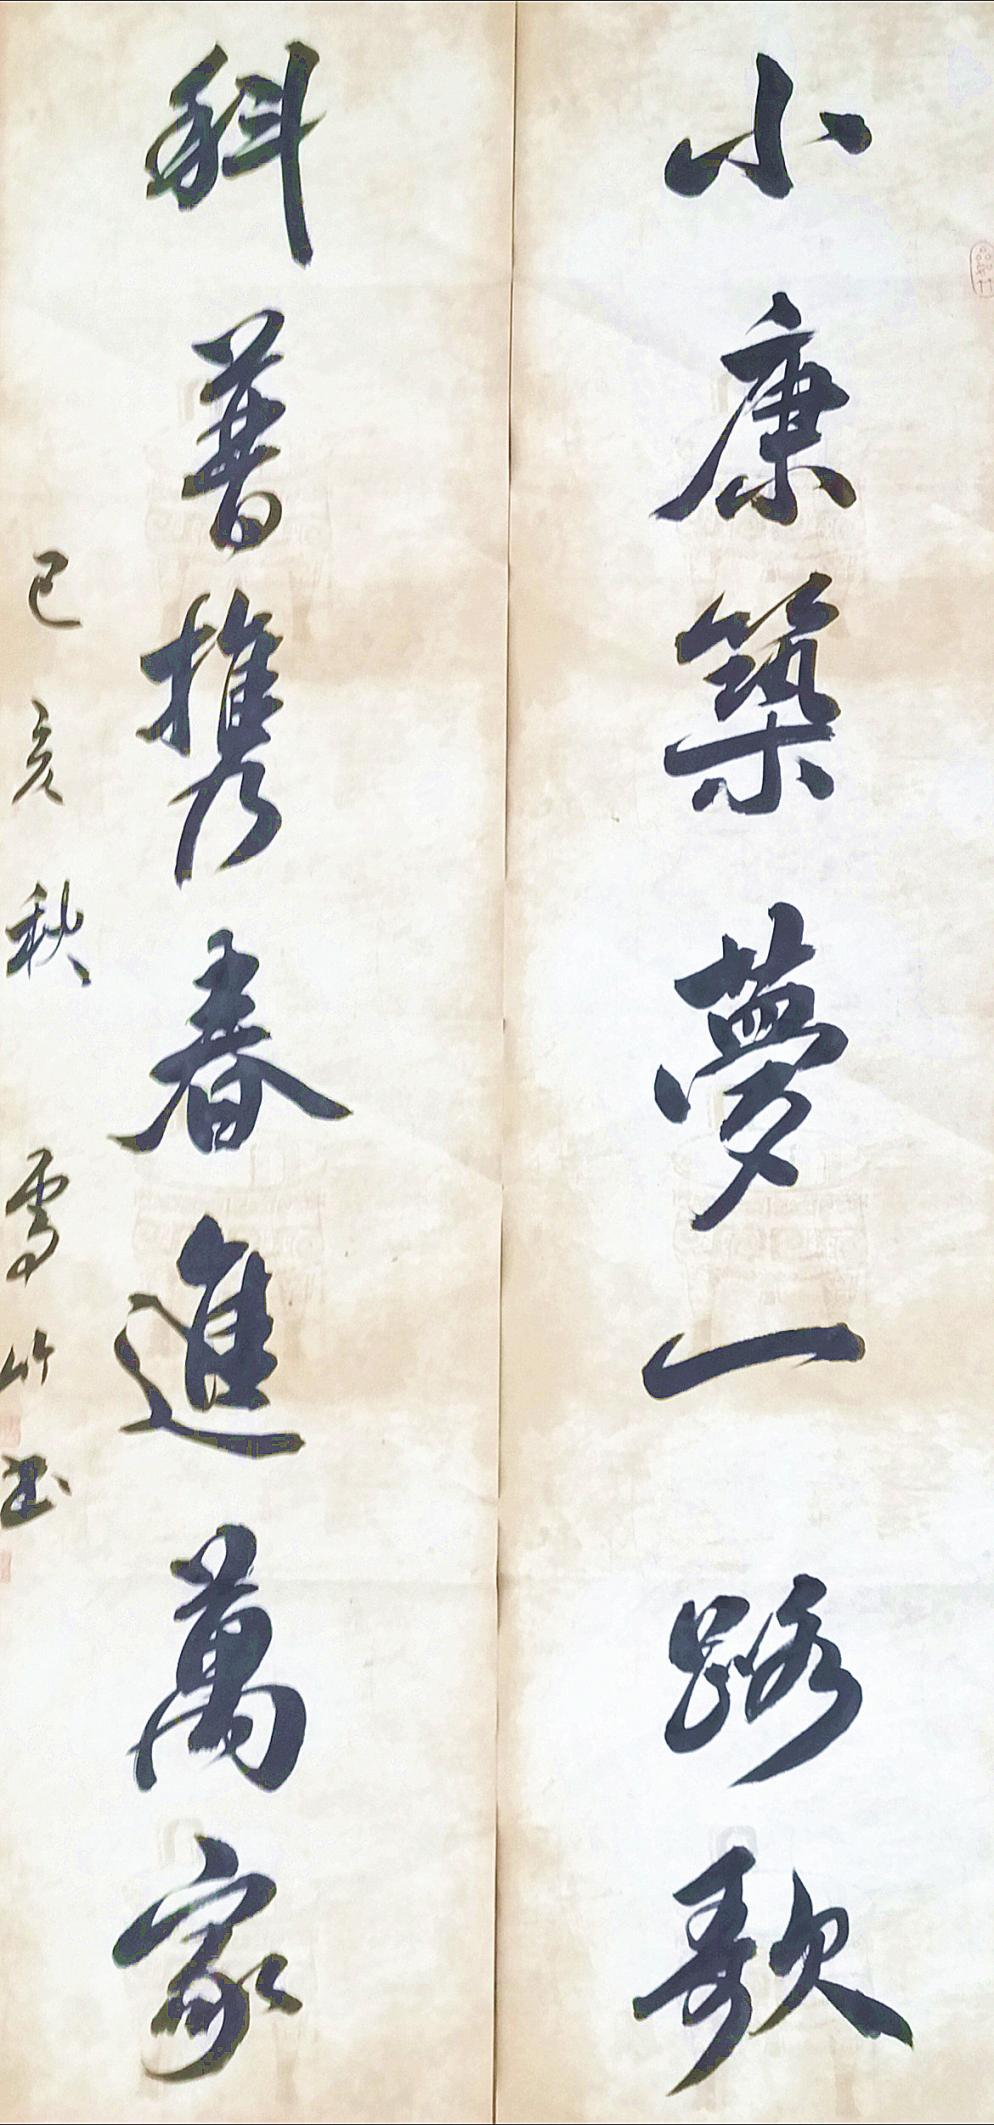 小康築夢一路歌
科普携春進萬家
己亥秋雪竹书